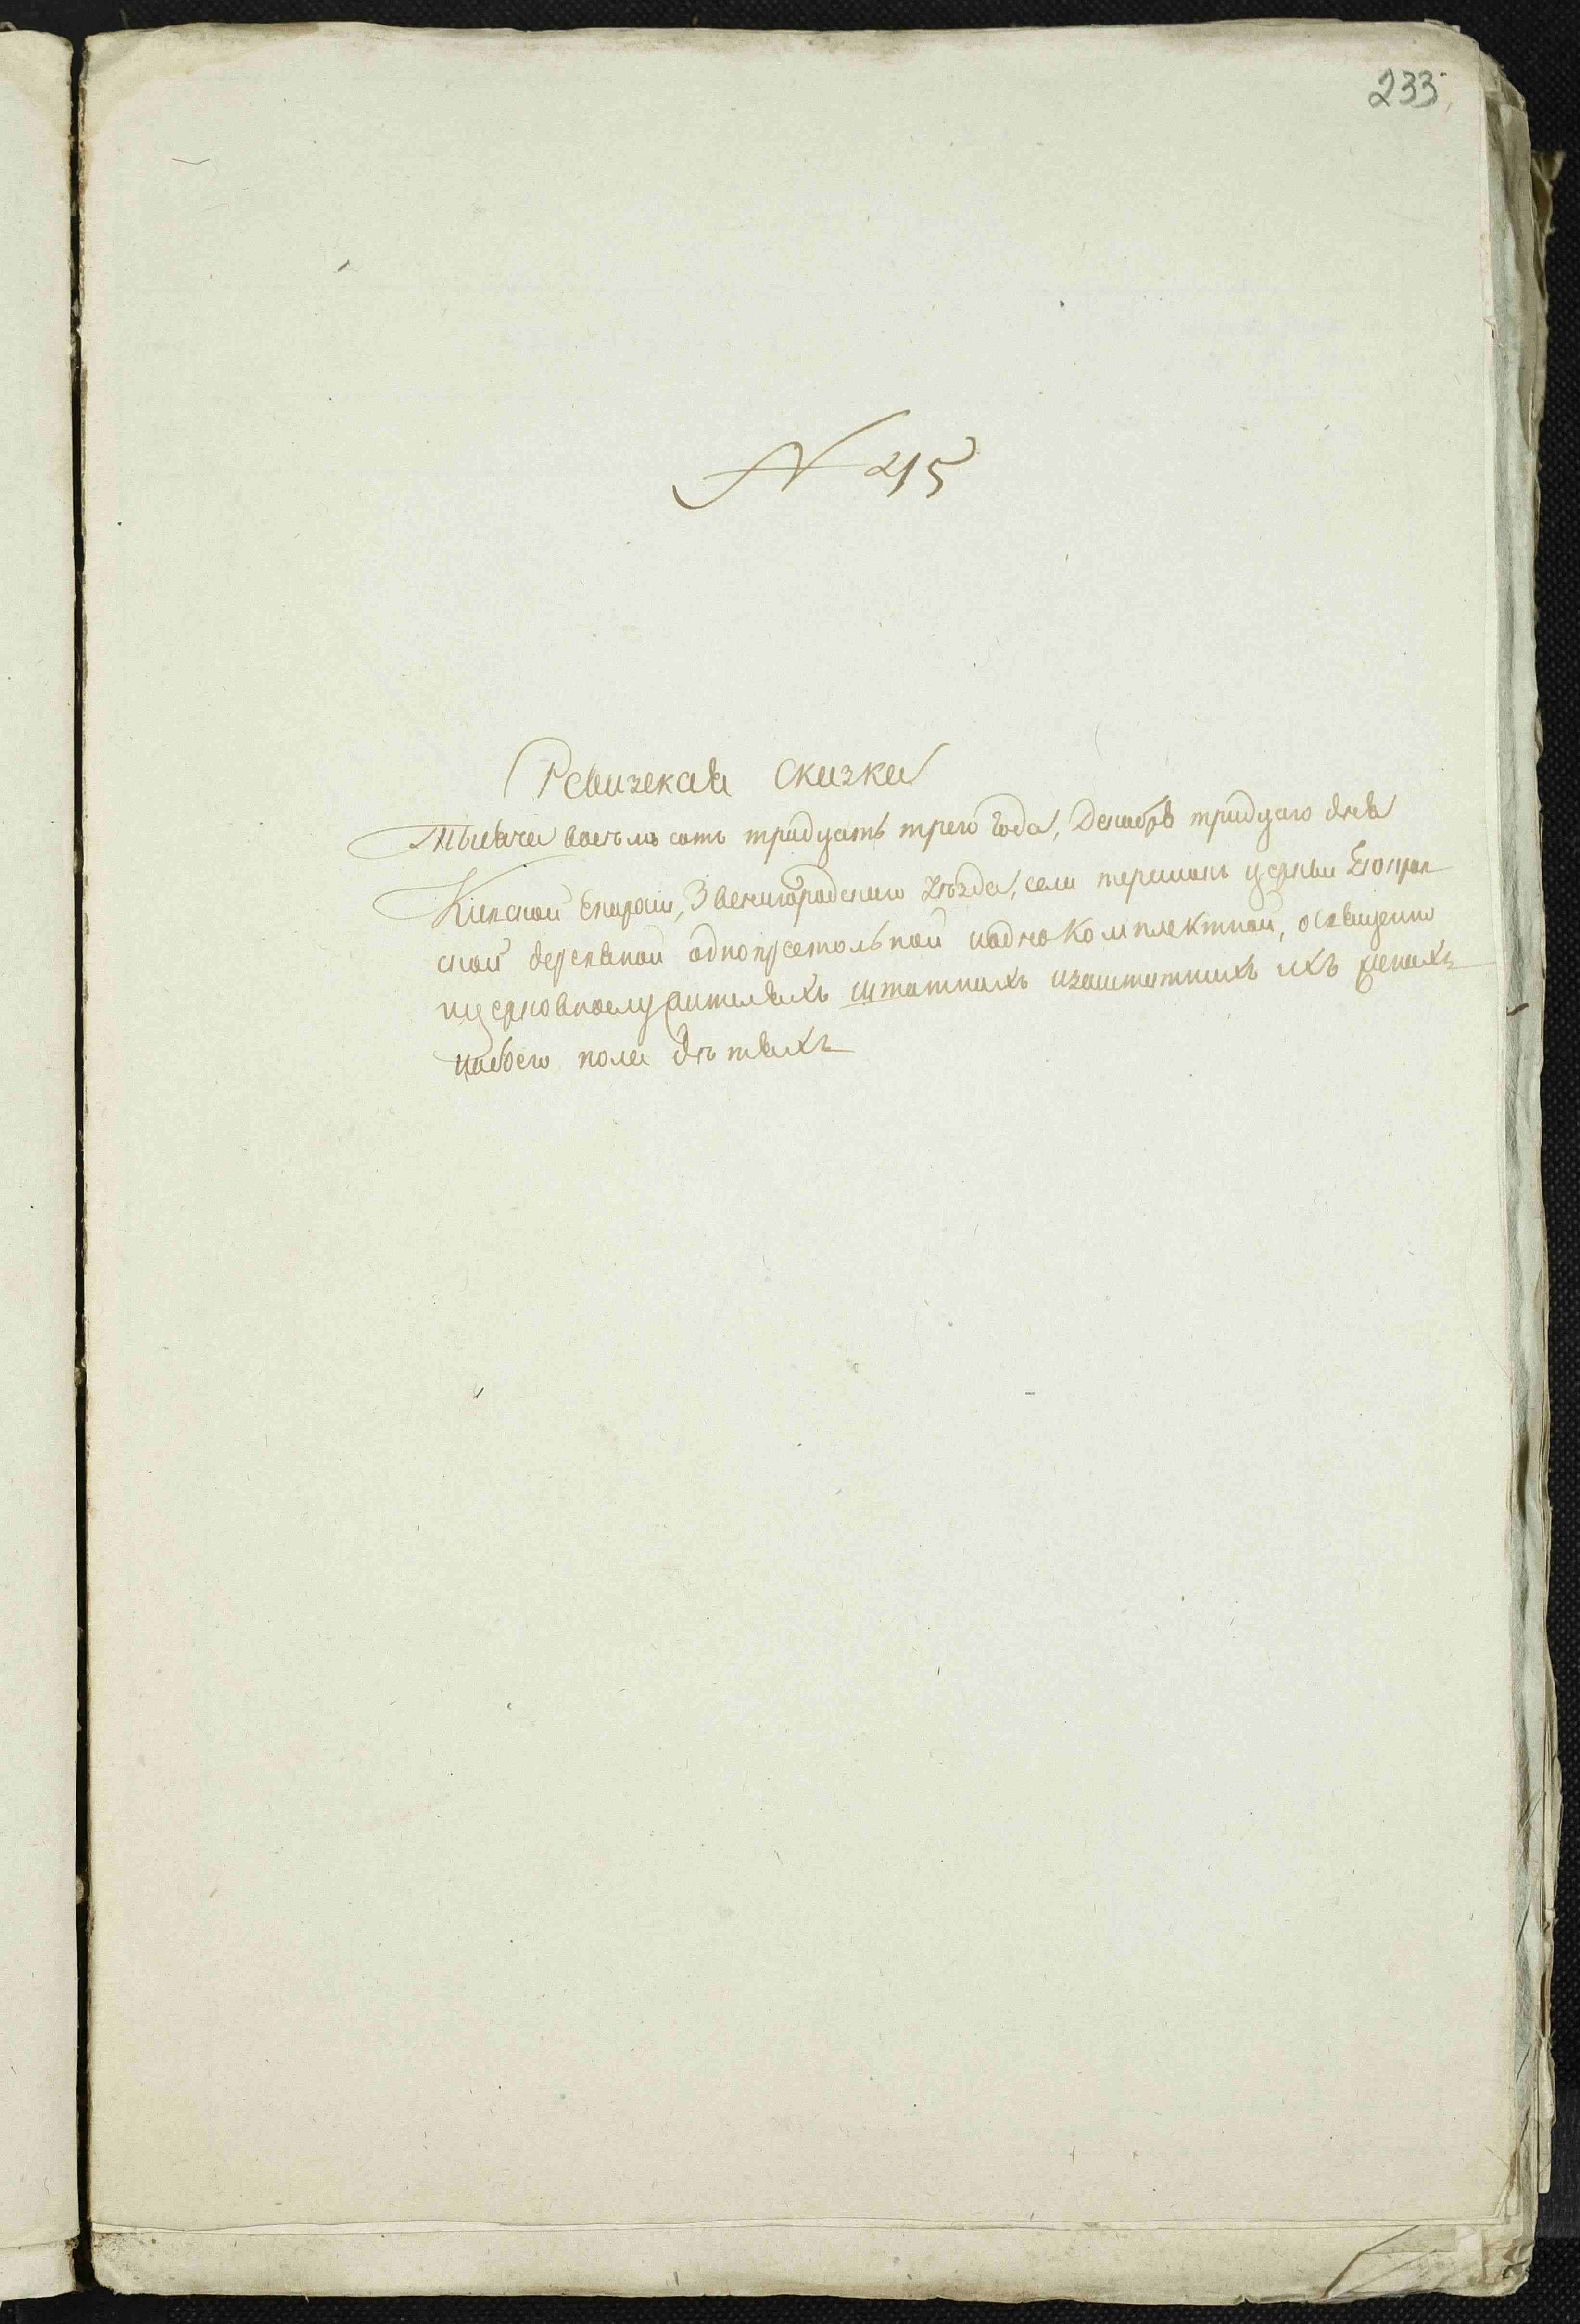 233
N 215
Ревизекая Сказка
Тысяча восемь сотъ тридцать трего года, Декабря тридцаго дня
Кіевской Епархіи, Звенигородскаго уѣзда, села церкви
ской деревяной однопрестольной иоднокомплектной, освященно
ицерковнослужителяхъ штатныхъ изаштатныхъ ихъ женахъ
иобоего пола дѣтяхъ